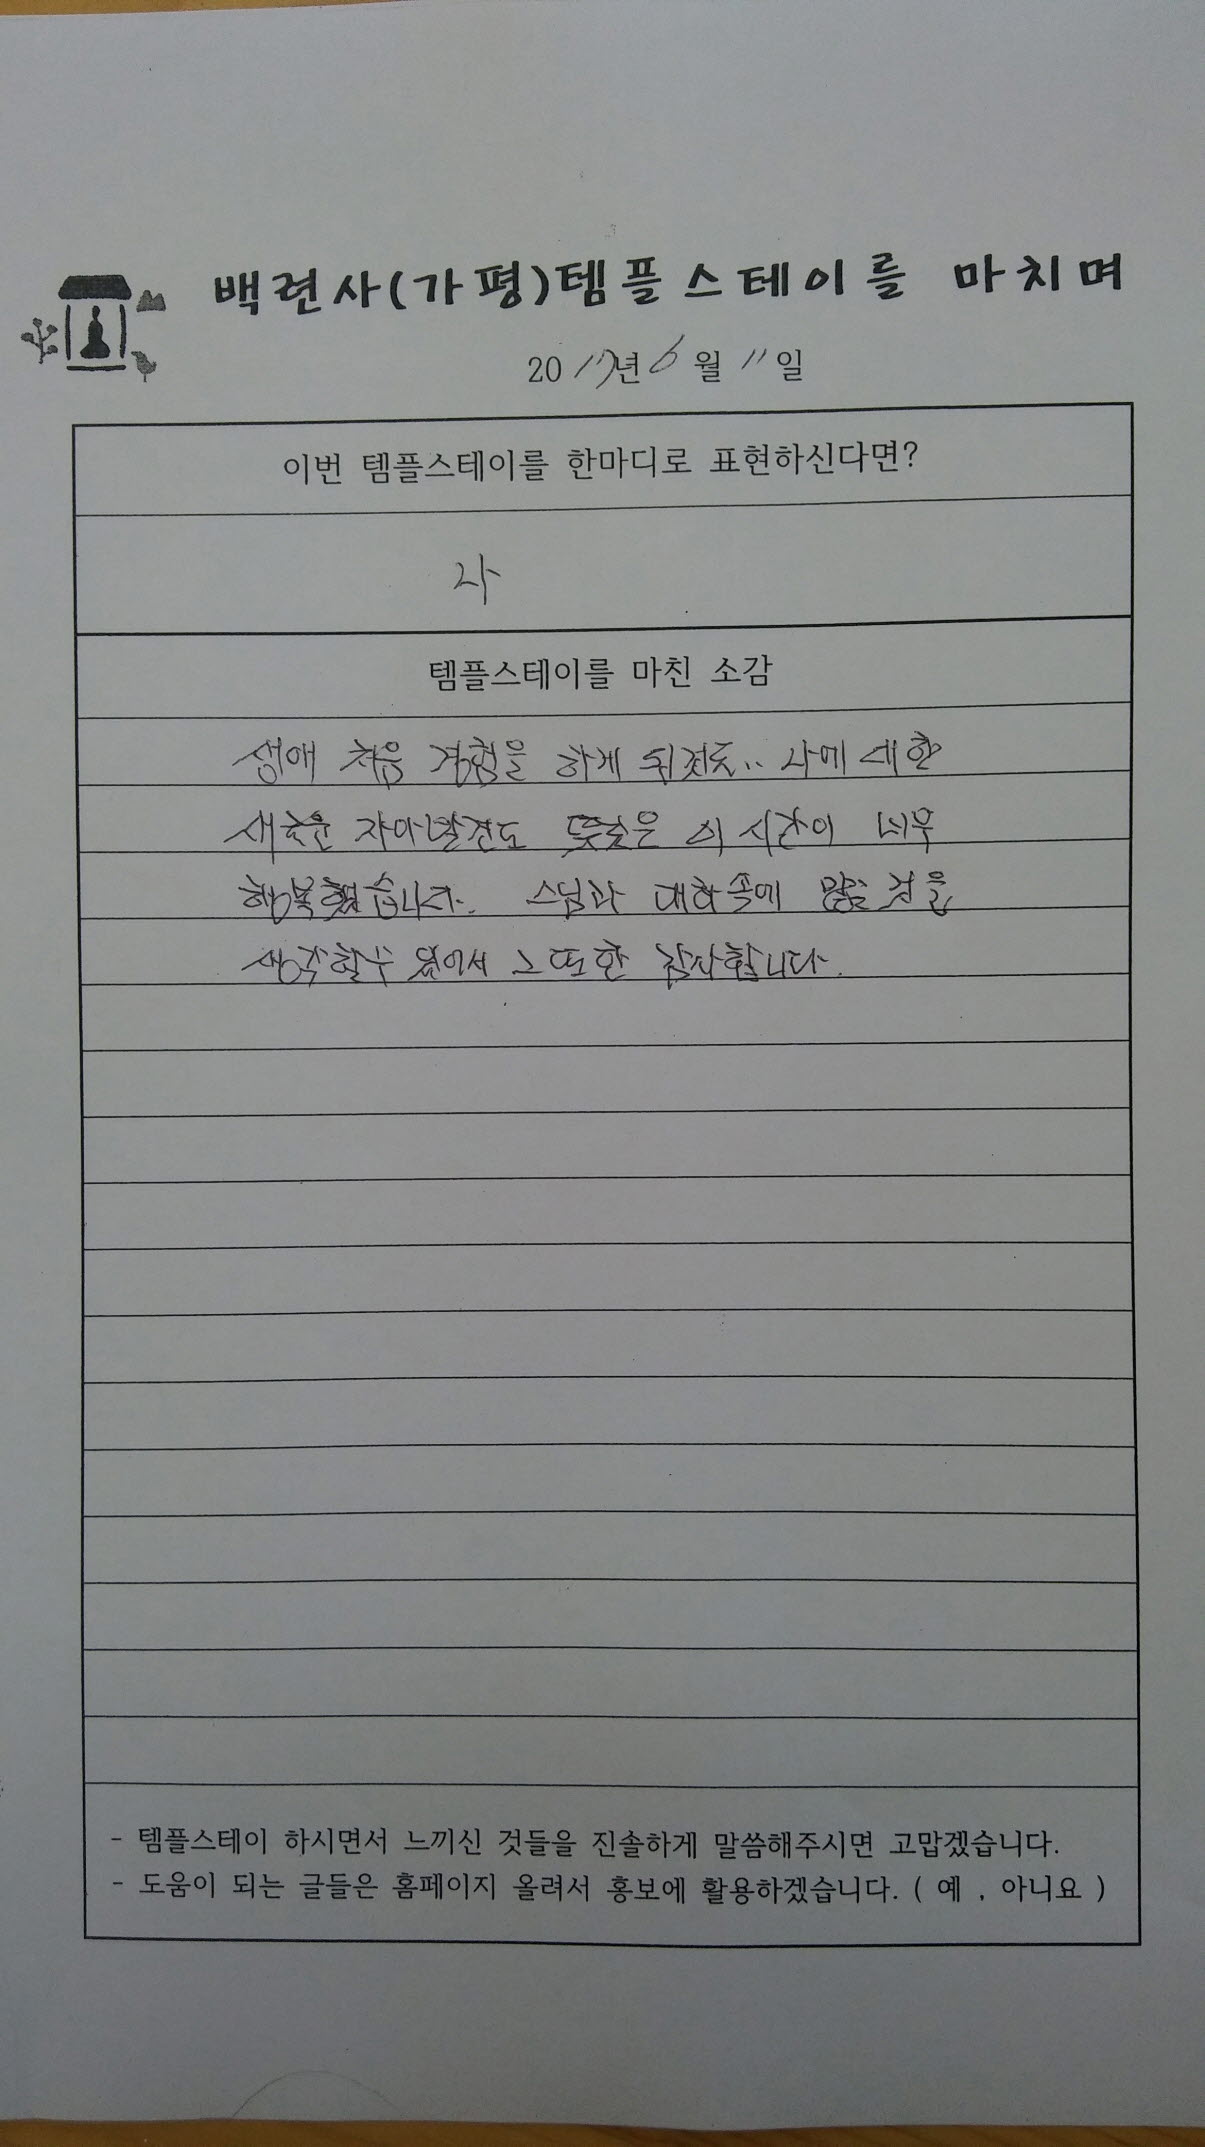 백련사(가평)템플스테이를 마치며
2017년 6월 11일
이번 템플스테이를 한마디로 표현하신다면?
나
템플스테이를 마친 소감
생애 처음 경험을 하게 된것도.. 나에 대한
새로운 자아발견도 뜻깊은 이 시간이 너무
행복했습니다. 스님과 대화속에 많은 것을
생각할수 있어서 그 또한 감사합니다.
- 템플스테이 하시면서 느끼신 것들을 진솔하게 말씀해주시면 고맙겠습니다.
- 도움이 되는 글들은 홈페이지 올려서 홍보에 활용하겠습니다. ( 예 , 아니요 )